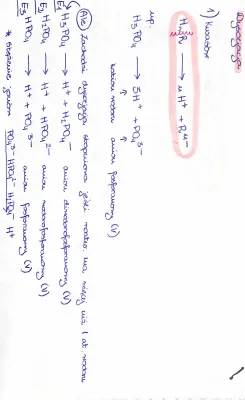 Dysocjacja
1) kwasów
HnR → n H⁺ + Rⁿ⁻
np.
H₃PO₄ → 3H⁺ + PO₄³⁻
kation wodoru anion fosforanowy (V)
Ale Zachodzi dysocjacja stopniowa jeśli kwas ma więcej niż 1 at. wodoru
E₁ H₃PO₄ → H⁺ + H₂PO₄⁻ anion diwodorofosforanowy (V)
E₂ H₂PO₄⁻ → H⁺ + HPO₄²⁻ anion wodorofosforanowy (V)
E₃ HPO₄²⁻ → H⁺ + PO₄³⁻ anion fosforanowy (V)
* PO₄³⁻ HPO₄²⁻ H₂PO₄⁻ H⁺